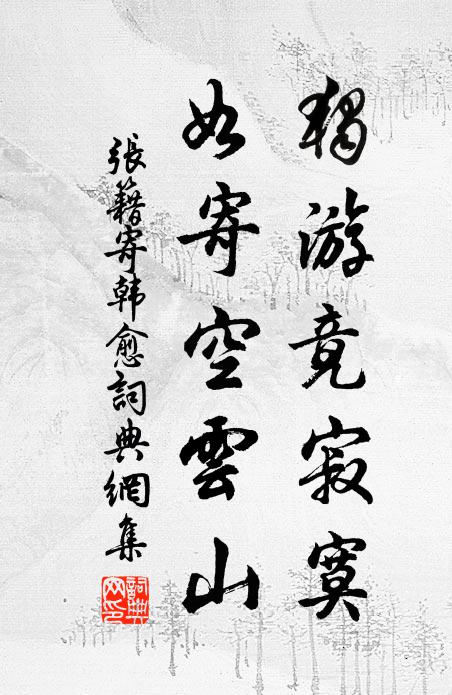 獨游竟寂寞
如寄空雲山
張籍寄韓愈詞典網集
詞典網印